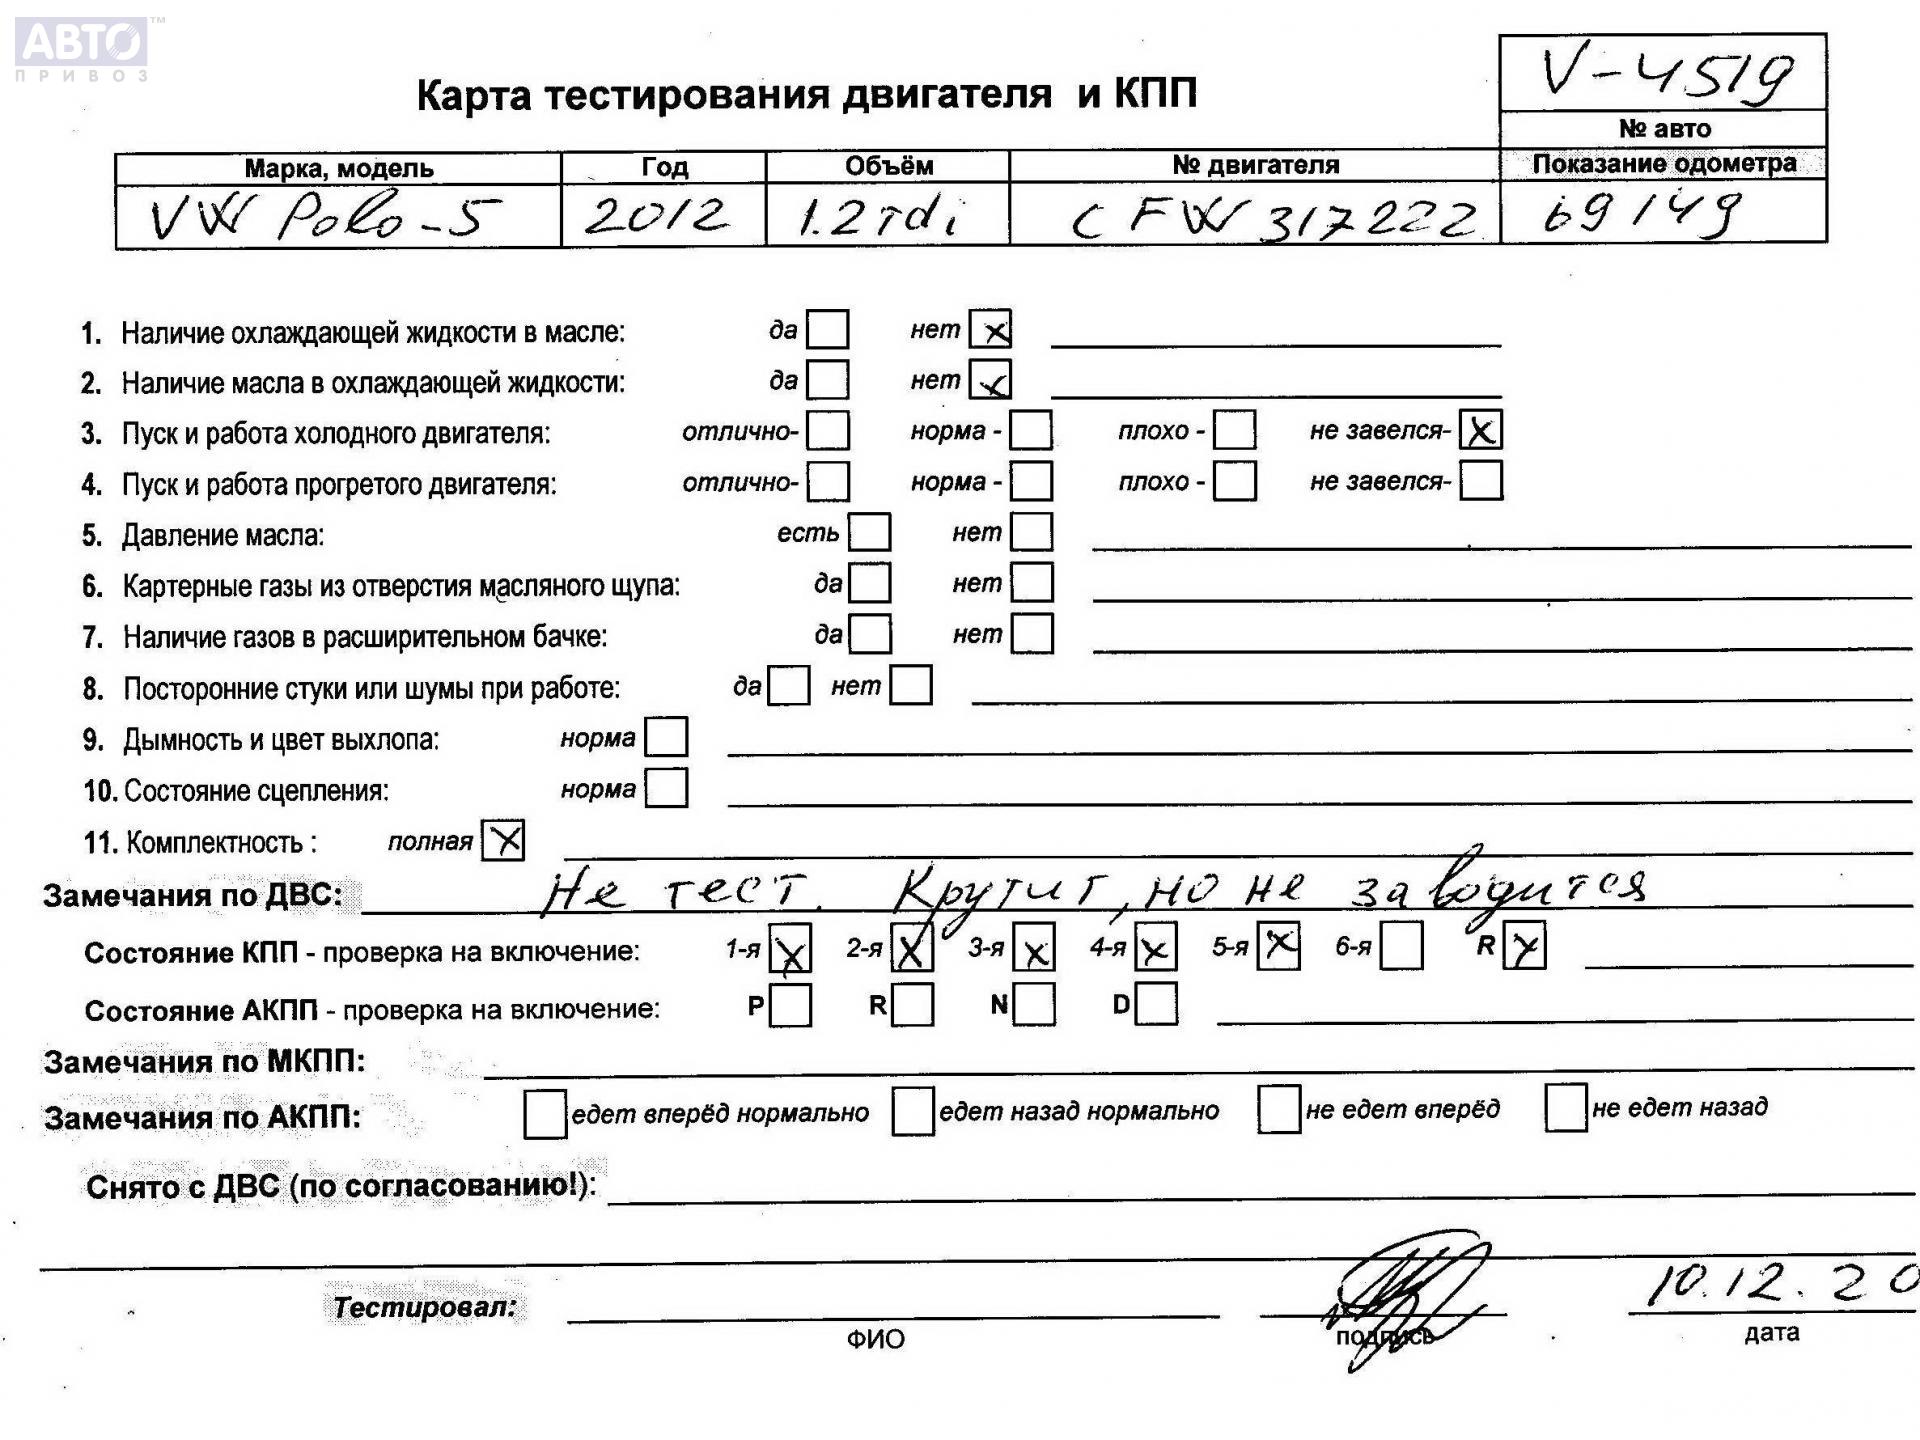 АВТО™
ПРИВОЗ
V-4519
Карта тестирования двигателя и КПП
№ авто
Марка, модель Год Объём № двигателя Показание одометра
VW Polo-5 2012 1.2 TDi CFW 317222 69149
1. Наличие охлаждающей жидкости в масле: да нет x
2. Наличие масла в охлаждающей жидкости: да нет x
3. Пуск и работа холодного двигателя: отлично- норма - плохо - не завелся- x
4. Пуск и работа прогретого двигателя: отлично- норма - плохо - не завелся-
5. Давление масла: есть нет
6. Картерные газы из отверстия масляного щупа: да нет
7. Наличие газов в расширительном бачке: да нет
8. Посторонние стуки или шумы при работе: да нет
9. Дымность и цвет выхлопа: норма
10. Состояние сцепления: норма
11. Комплектность : полная x
Замечания по ДВС: Не тест. Крутит, но не заводится
Состояние КПП - проверка на включение: 1-я x 2-я x 3-я x 4-я x 5-я x 6-я R x
Состояние АКПП - проверка на включение: P R N D
Замечания по МКПП:
Замечания по АКПП: едет вперёд нормально едет назад нормально не едет вперёд не едет назад
Снято с ДВС (по согласованию!):
Тестировал: 10.12.20
ФИО подпись дата